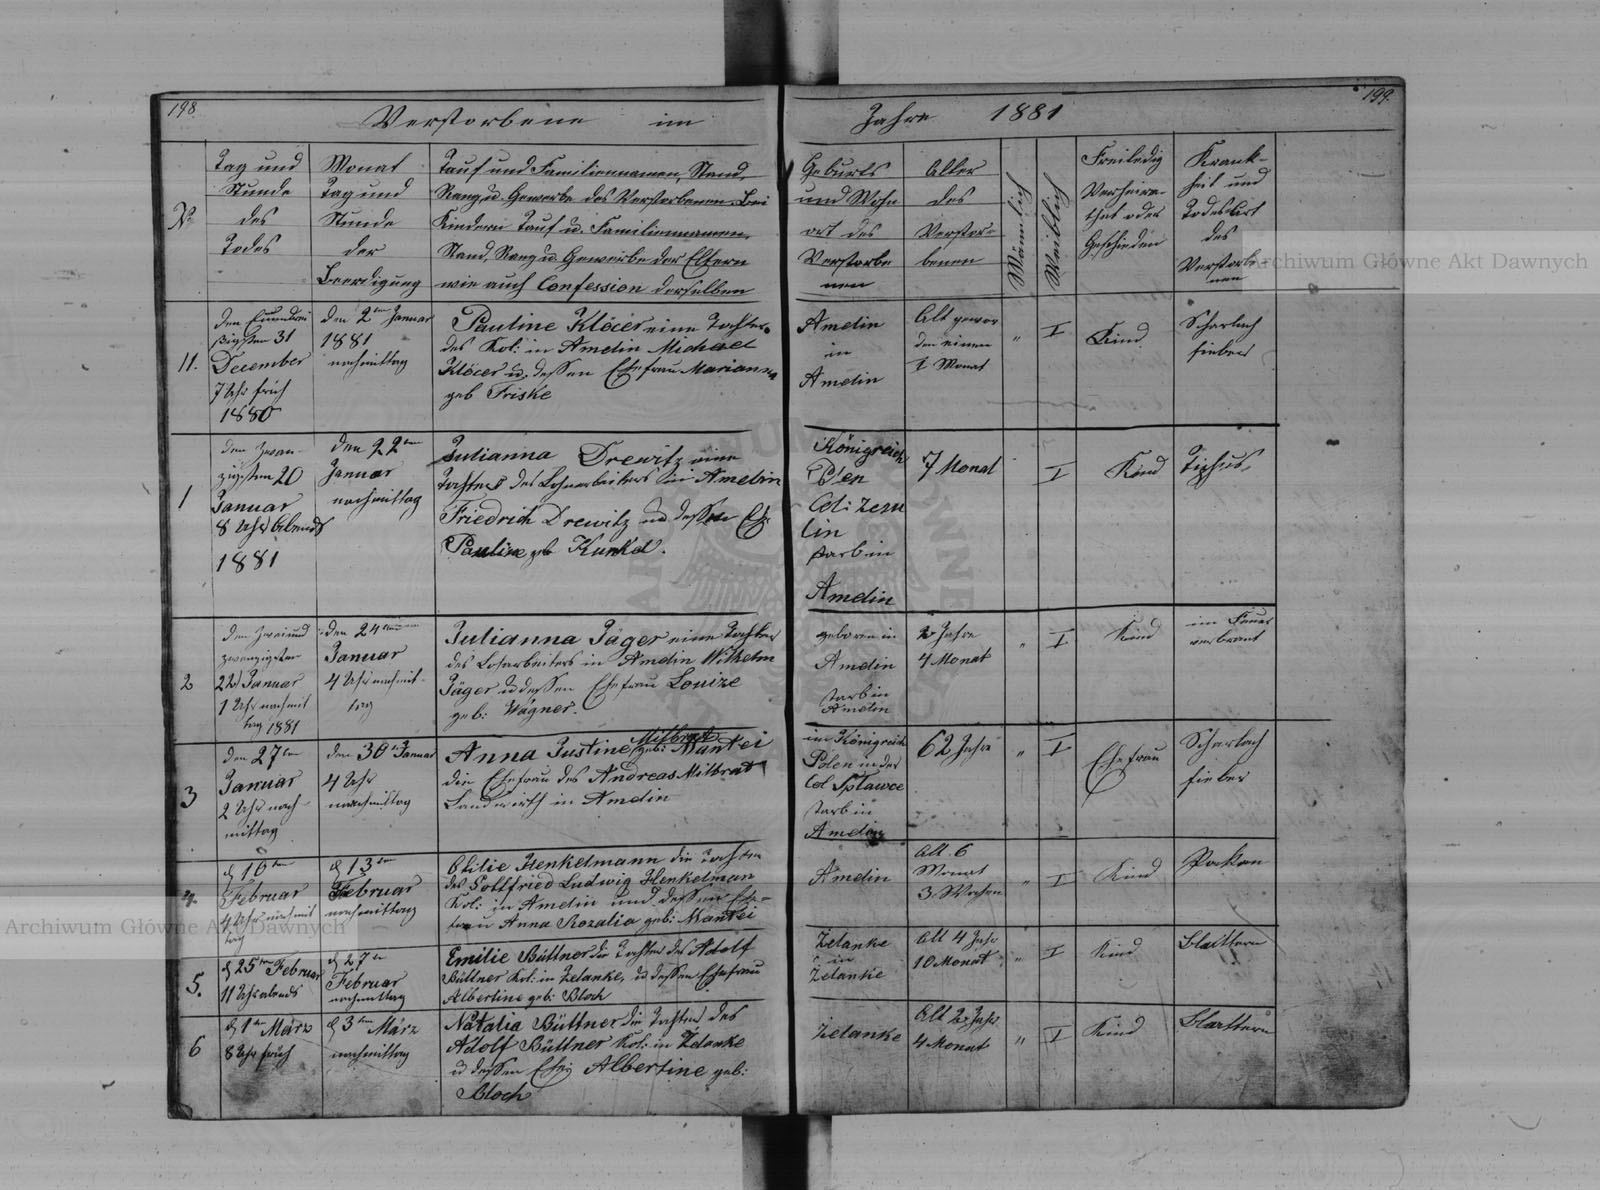 198.
199.
Verstorbene im Jahre 1881
№
Tag und
Stunde
des
Todes
Monat
Tag und
Stunde
der
Beerdigung
Tauf und Familiennamen, Stand,
Rang u. Gewerbe des Verstorbenen. Bei
Kindern Tauf u. Familiennamen,
Stand, Rang u Gewerbe der Eltern
wie auch Confession derselben
Geburts
und Wohn
ort des
Verstorbe
nen
Alter
des
Verstor-
benen
Männlich
Weiblich
Freiledig
Verheira-
thet oder
Geschieden
Krank-
heit und
Todes Art
des
Verstorbe
nen
11.
den Einundrei
ßigsten 31
December
7 Uhr früh
1880
den 2ten Januar
1881
nachmittag
Pauline Klöcer eine Tochter
des Kol: in Amelin Michael
Klöcer u. dessen Ehefrau Marianna
geb Friske
Amelin
in
Amelin
Alt gewor
den einen
1 Monat
" I
Kind
Scharlach
fieber
1
den Zwan-
zigsten 20
Januar
8 Uhr Abends
1881
den 22ten
Januar
nachmittag
Julianna Drewitz eine
Tochter des Lohnarbeiters in Amelin
Friedrich Drewitz und dessen Ehe
Pauline geb Kunkel.
Königreich
Polen
Col: Zem
lin
starb in
Amelin
7 Monat
I
Kind
Tiphus,
2
den Zweiund
zwanzigsten
22 Januar
1 Uhr nachmit
tag 1881
den 24ten
Januar
4 Uhr nachmit-
tag
Julianna Jäger eine Tochter
des Loharbeiters in Amelin Wilhelm
Jäger u dessen Ehefrau Louize
geb: Wagner.
geboren in
Amelin
starb in
Amelin
2 Jahre
4 Monat
" I
Kind
im Feuer
verbrant
3
den 27ten
Januar
2 Uhr nach-
mittag
den 30ten Januar
4 Uhr
nachmittag
Anna Justine Milbrat geb: Mantei
die Ehefrau des Andreas Milbrat
Landwirth in Amelin
im Königreich
Polen in der
Col Spławce
starb in
Amelin
62 Jahre
" I
Ehefrau
Scharlach
fieber
4.
d 10ten
Februar
4 Uhr nachmit
tag
d 13ten
Februar
nachmittag
Otilie Henkelmann die Tochter
des Gottfried Ludwig Henkelman
Kol: in Amelin und dessen Ehe-
frau Anna Rozalia geb: Mantei
Amelin
Alt 6
Monat
3 Wochen
" I
Kind
Pocken
5.
d 25ten Februar
11 Uhr abends
d 27ten
Februar
nachmittag
Emilie Büttner die Tochter des Adolf
Büttner Kol: in Zelanke, u dessen Ehefrau
Albertine geb: Bloch
Zelanke
in
Zelanke
Alt 4 Jahr
10 Monat
" I
Kind
Blattern
6
d 1ten März
8 Uhr früh
d 3ten März
nachmittag
Natalia Büttner die Tochter des
Adolf Büttner Kol: in Zelanke
u dessen Ehe: Albertine geb:
Bloch
Zelanke
Alt 2 Jahr
4 Monat
" I
Kind
Blattern
Archiwum Główne Akt Dawnych
Archiwum Główne Akt Dawnych